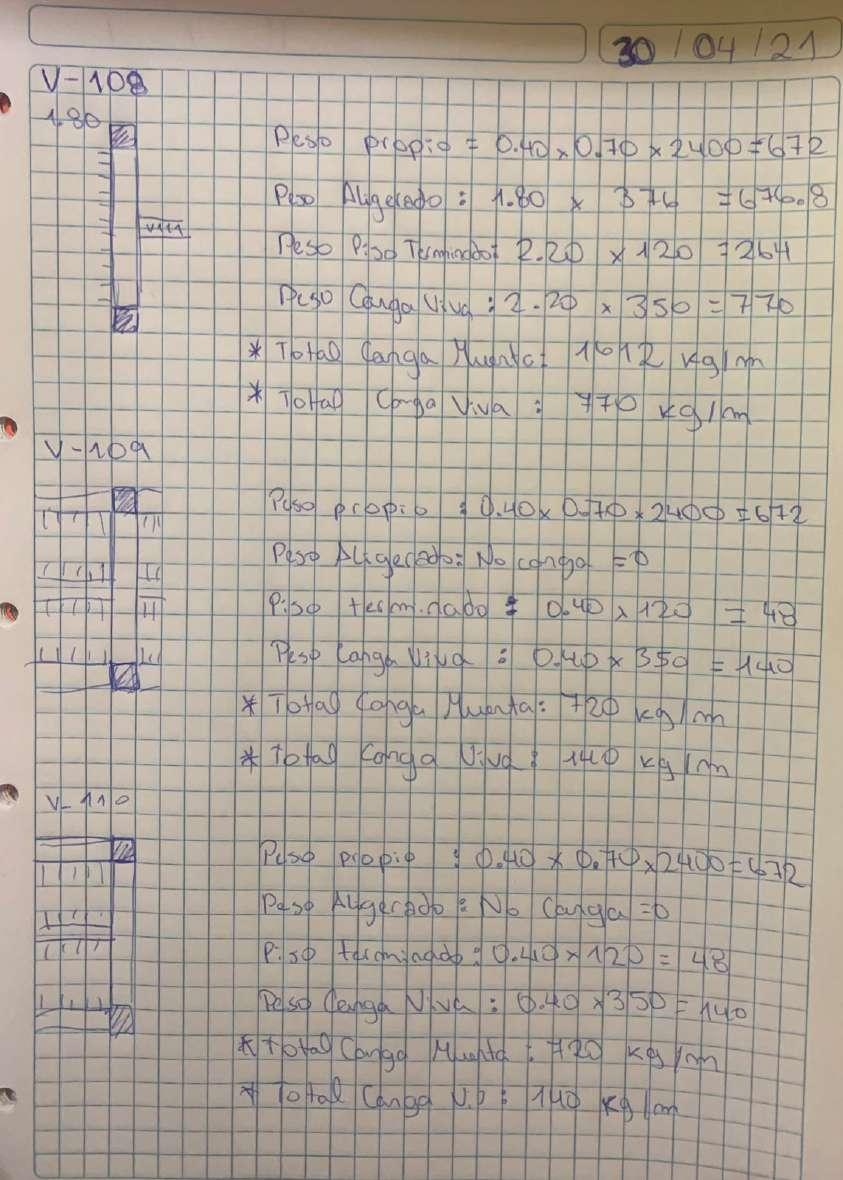 30/04/21
V-108
1.80
Peso propio = 0.40 x 0.70 x 2400 = 672
Peso Aligerado : 1.80 x 376 = 676.8
V111
Peso Piso Terminado: 2.20 x 120 = 264
Peso Carga Viva : 2.20 x 350 = 770
* Total Carga Muerta: 1612 kg/m
* Total Carga Viva : 770 kg/m
V-109
Peso propio : 0.40 x 0.70 x 2400 = 672
Peso Aligerado: No carga = 0
Piso terminado : 0.40 x 120 = 48
Peso Carga Viva : 0.40 x 350 = 140
* Total Carga Muerta: 720 kg/m
* Total Carga Viva : 140 kg/m
V-110
Peso propio : 0.40 x 0.70 x 2400 = 672
Peso Aligerado : No Carga = 0
Piso terminado : 0.40 x 120 = 48
Peso Carga Viva : 0.40 x 350 = 140
* Total Carga Muerta : 720 kg/m
* Total Carga : 140 kg/m